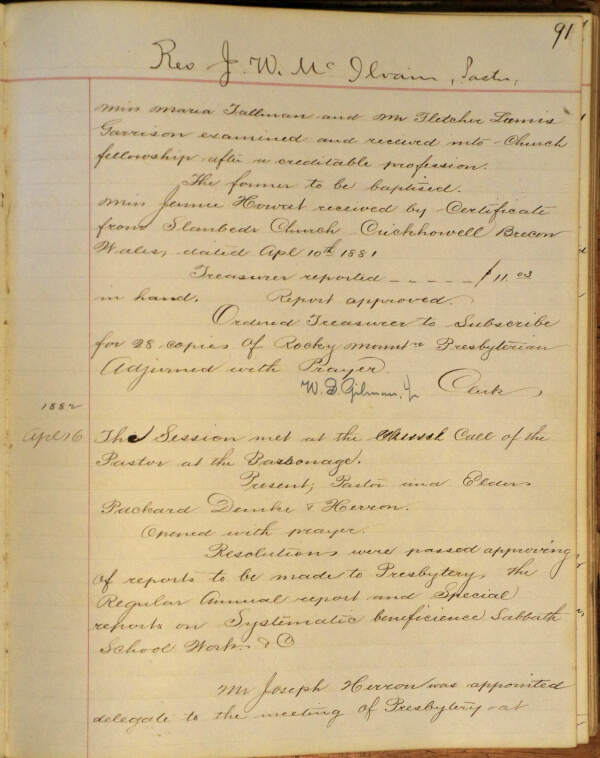 91
Rev J. W. McIlvain, Pastor,
Miss Maria Tallman and Mr Fletcher Loomis
Garrison examined and received into Church
fellowship after a creditable profession.
The former to be baptised.
Miss Jannie Howest received by Certificate
from Slanbedr Church Crickhowell Brecon
Wales, dated Apl 10th 1881
Treasurer reported _ _ _ _ _ $11.03
in hand. Report approved.
Ordered Treasurer to Subscribe
for 28 copies of Rocky Mount'n Presbyterian
Adjurned with Prayer.
W. F. Gilman, Jr Clerk,
1882
Apl 16 The Session met at the Call of the
Pastor at the Parsonage.
Present; Pastor and Elders
Packard Demke & Herron.
Opened with prayer.
Resolutions were passed approving
of reports to be made to Presbytery, the
Regular Annual report and Special
reports on Systematic beneficience Sabbath
School Work. & C
Mr Joseph Herron was appointed
delegate to the meeting of Presbytery at